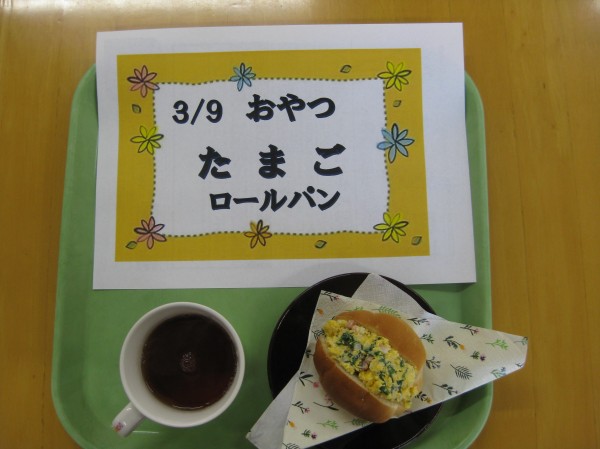 3/9 おやつ
たまご
ロールパン